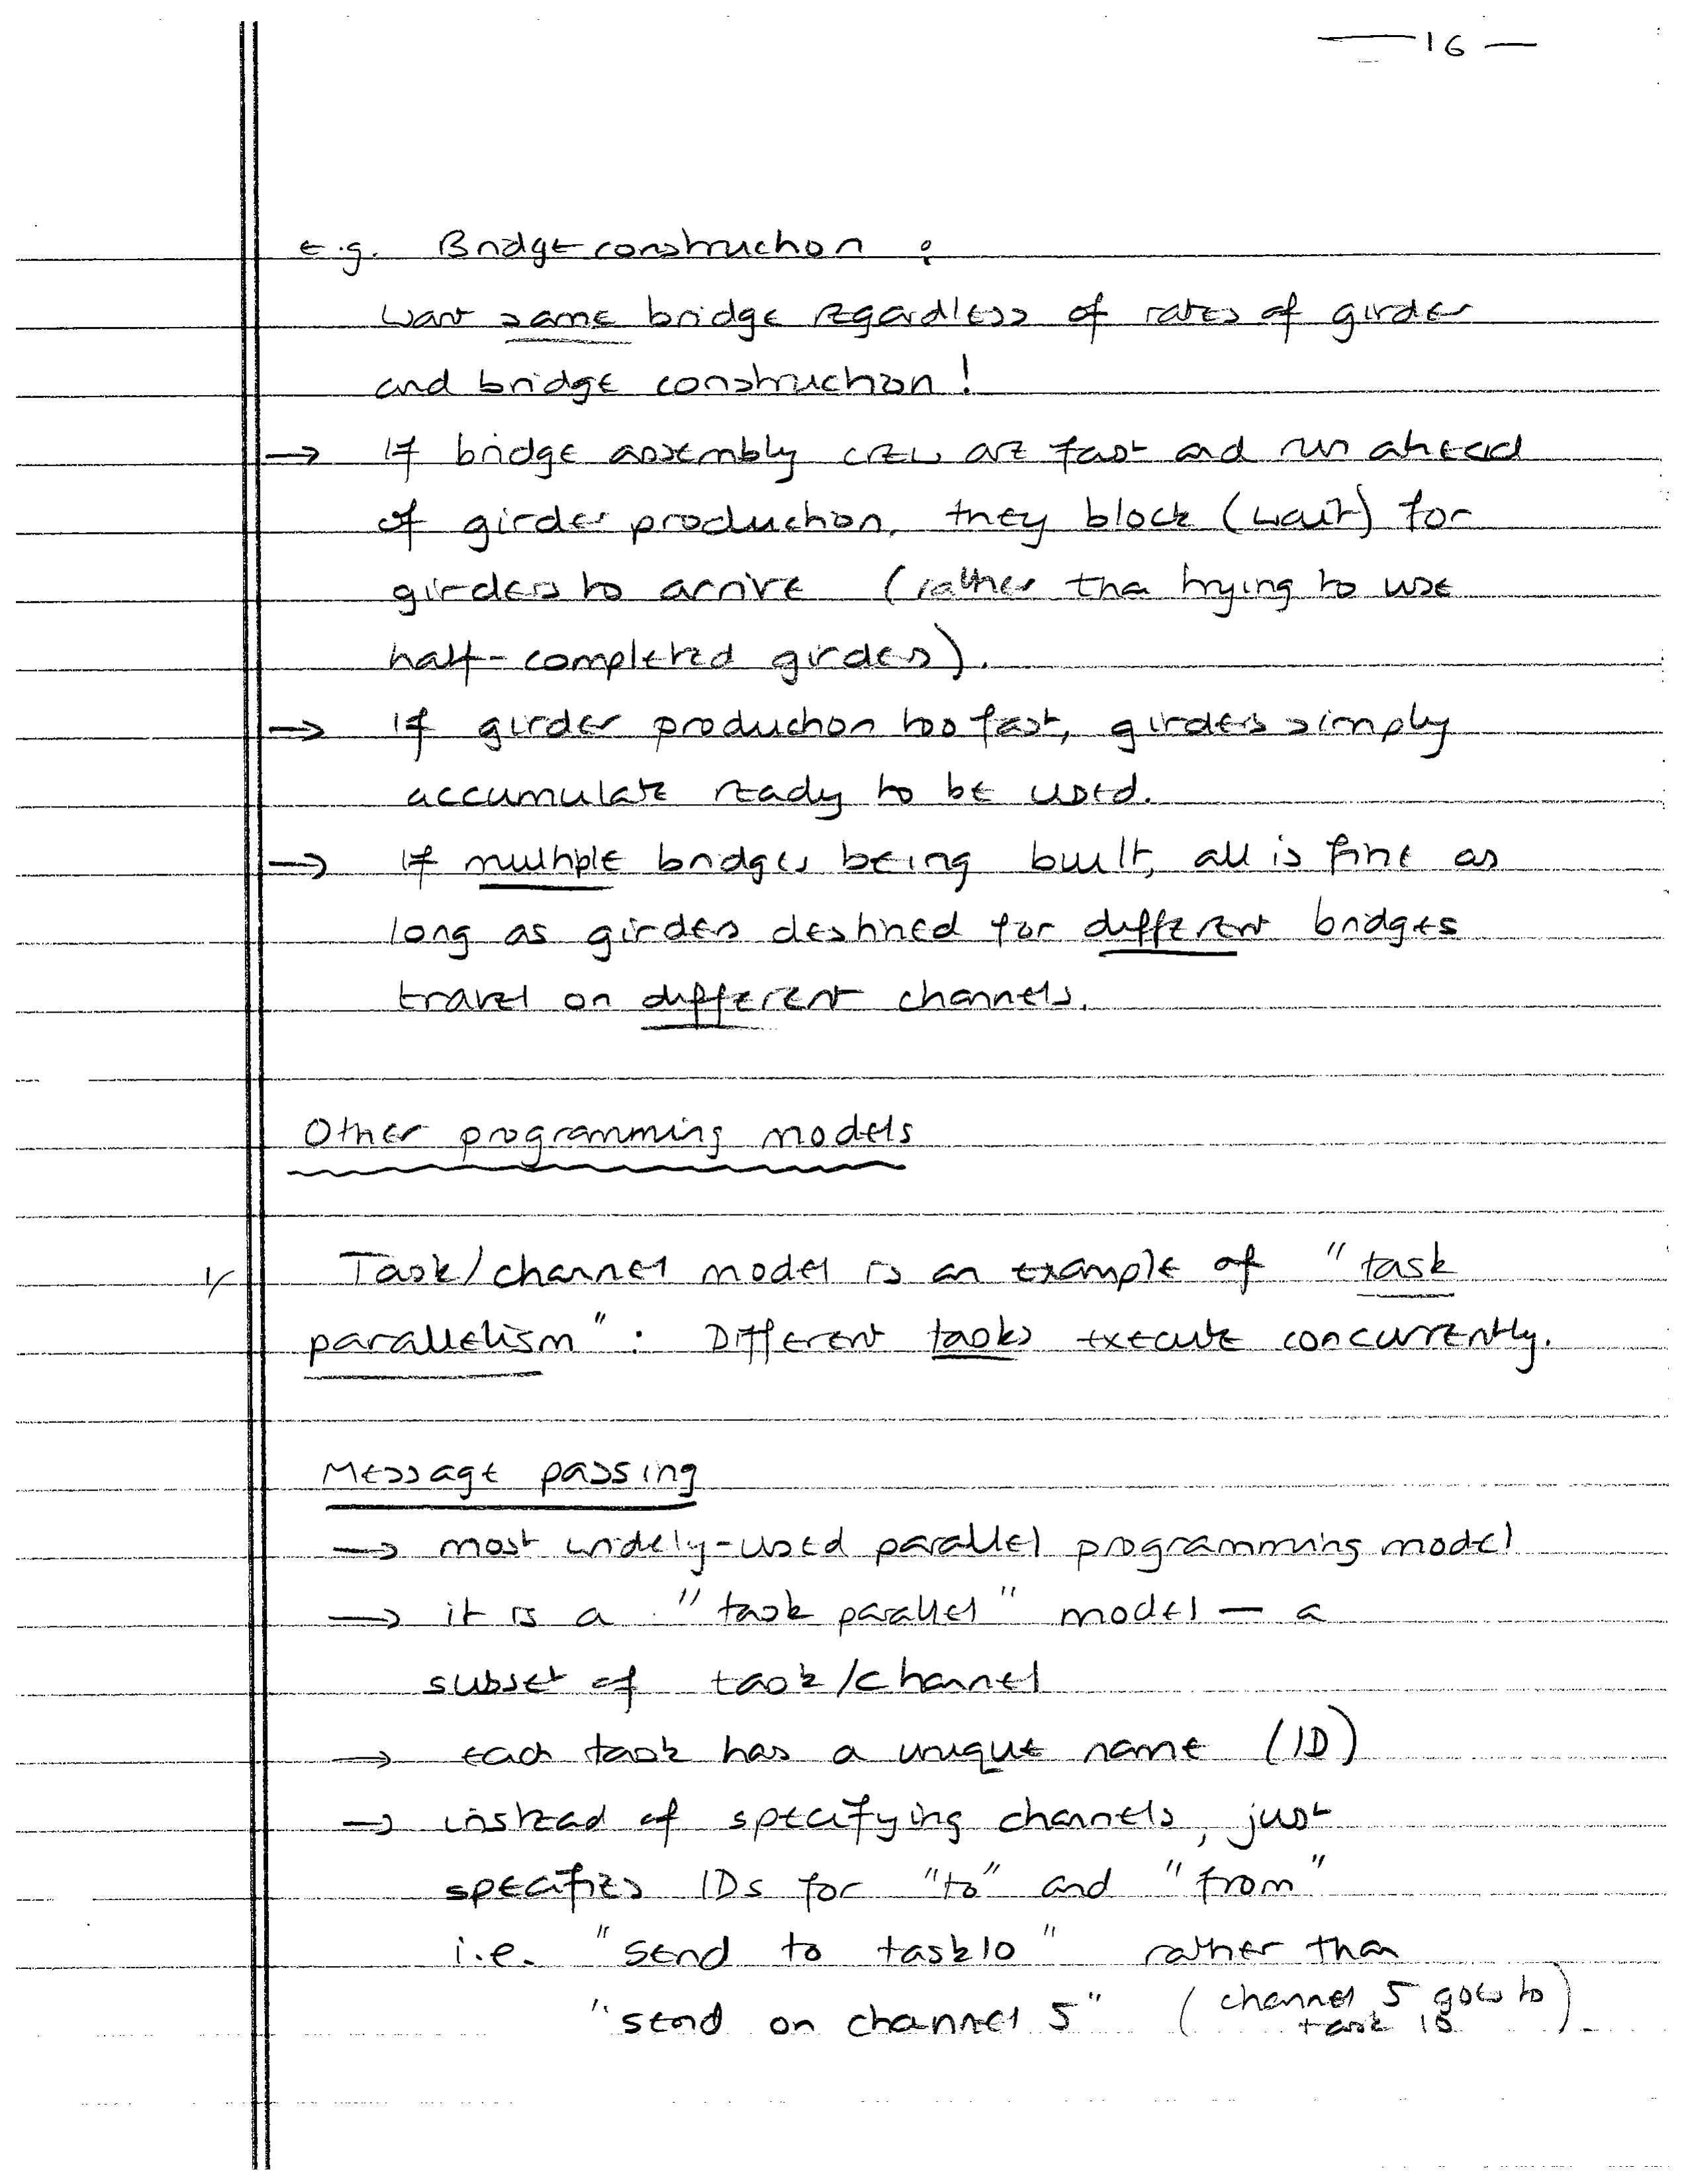 — 16 —
e.g. Bridge construction :
want same bridge regardless of rates of girder
and bridge construction!
→ If bridge assembly crew are fast and run ahead
of girder production, they block (wait) for
girders to arrive (rather than trying to use
half-completed girders).
→ If girder production too fast, girders simply
accumulate ready to be used.
→ If multiple bridges being built, all is fine as
long as girders destined for different bridges
travel on different channels.
Other programming models
1/ Task/channel model is an example of "task
parallelism" : Different tasks execute concurrently.
Message passing
→ most widely-used parallel programming model
→ it is a "task parallel" model — a
subset of task/channel
→ each task has a unique name (ID)
→ instead of specifying channels, just
specifies IDs for "to" and "from"
i.e. "send to task10" rather than
"send on channel 5" (channel 5 goes to
task 10).